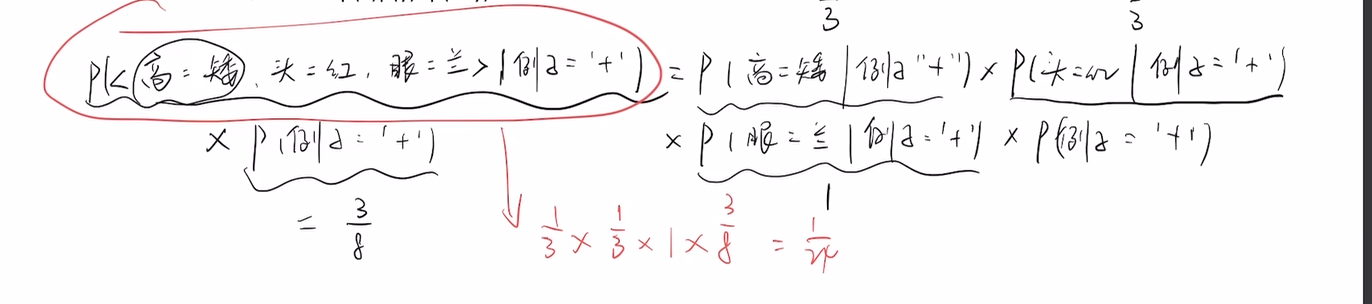 3 3
P(<高=矮、头=红,眼=兰>|例子='+') = P(高=矮|例子"+") × P(头=红|例子='+')
× P(例子='+') × P(眼=兰|例子='+') × P(例子='+')
1
= 3/8 1/3 × 1/3 × 1 × 3/8 = 1/24